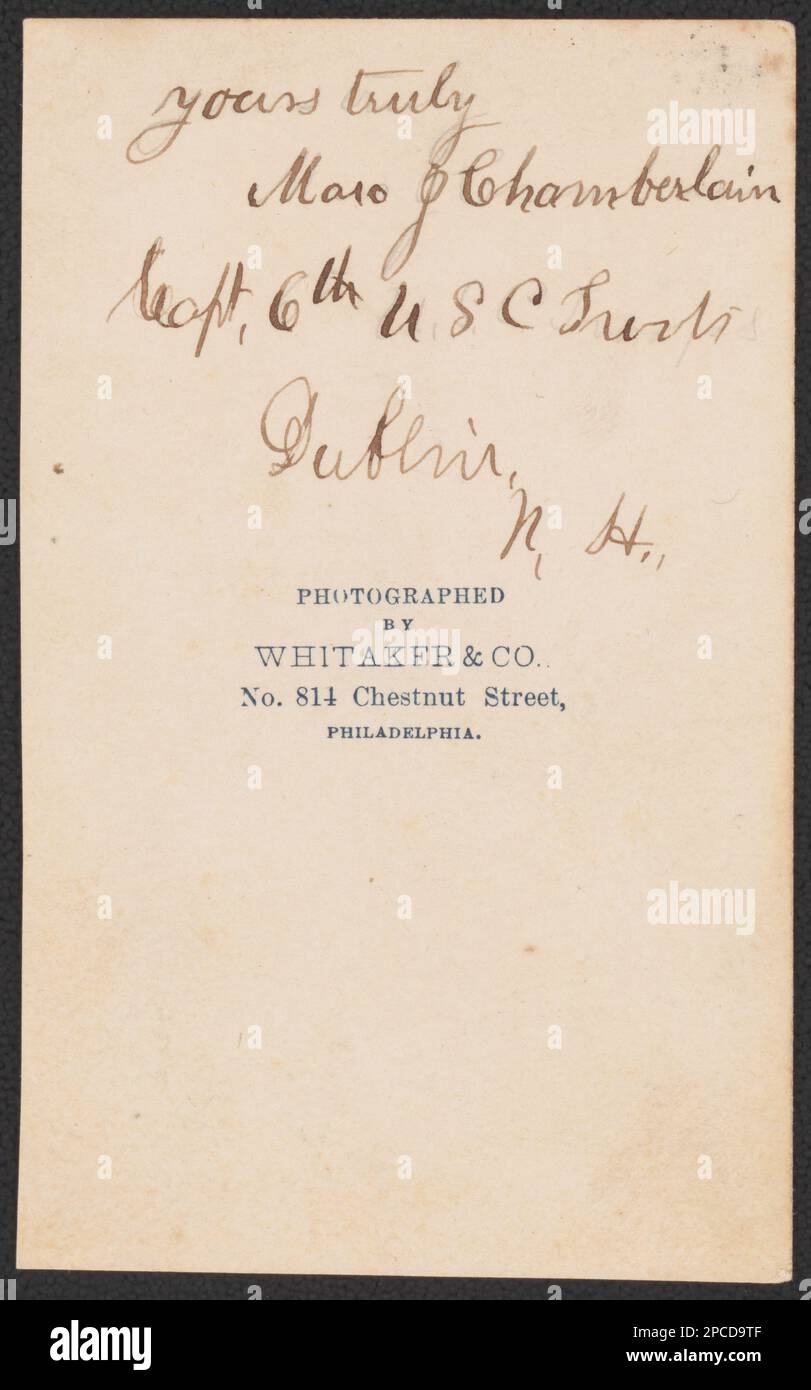 yours truly
Maro J Chamberlain
Capt, 6th U S C Troops
Dublin,
N, H.,
PHOTOGRAPHED
BY
WHITAKER & CO..
No. 814 Chestnut Street,
PHILADELPHIA.
alamy
alamy
alamy
a
alamy
Image ID: 2PCD9TF
www.alamy.com